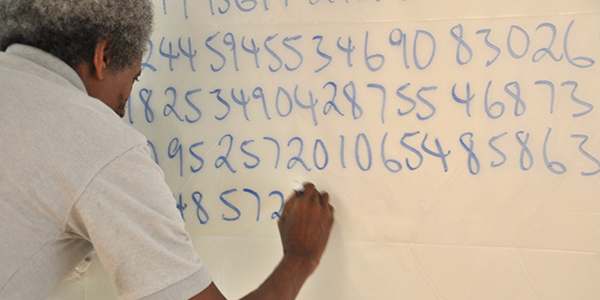 244594553469083026
825349042875546873
95257201065485863
48572